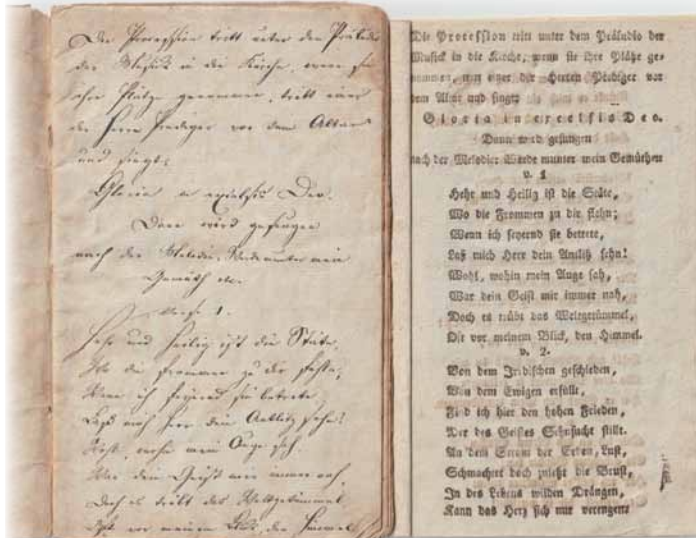 Die Procession tritt unter dem Präludio
der Musick in die Kirche, wenn sie
ihre Plätze genommen, tritt einer
der Herrn Prediger vor dem Altar
und singt:
Gloria in excelsis Deo.
Dann wird gesungen
nach der Melodie: Werde munter mein
Gemüth
Verse 1.
Hehr und heilig ist die Stäte,
Wo die Frommen zu dir
Wenn ich feyernd sie betrete,
Laß mich Herr dein Antlitz sehn!
Wohl, wohin mein Auge sah,
War dein Geist mir immer nah,
Doch es trübt das Weltgetümmel
Oft vor meinem Blick, den Himmel
Die Procession tritt unter dem Präludio der
Musick in die Kirche, wenn sie ihre Plätze ge-
nommen, tritt einer der Herren Prediger vor
dem Altar und singet
Gloria in excelsis Deo.
Dann wird gesungen
nach der Melodie: Werde munter mein Gemüthen
v. 1
Hehr und Heilig ist die Stäte,
Wo die Frommen zu dir flehn;
Wenn ich feyernd sie betrete,
Laß mich Herr dein Antlitz sehn!
Wohl, wohin mein Auge sah,
War dein Geist mir immer nah,
Doch es trübt das Weltgetümmel,
Oft vor meinem Blick, den Himmel.
v. 2.
Von dem Irdischen geschieden,
Von dem Ewigen erfüllt,
Find ich hier den hohen Frieden,
Der des Geistes Sehnsucht stillt.
An dem Strom der Erden, Lust,
Schmachtet doch zuletzt die Brust,
In des Lebens wilden Drängen,
Kann das Herz sich nur verengern